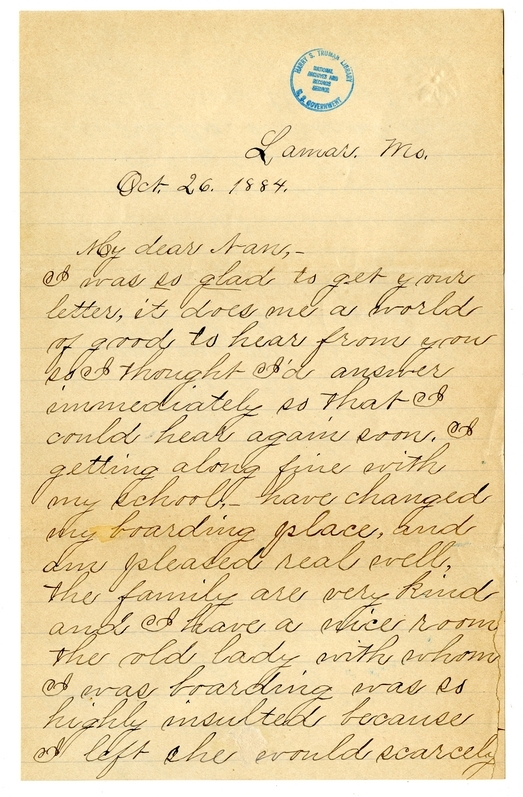 HARRY S. TRUMAN LIBRARY
NATIONAL
ARCHIVES AND
RECORDS
SERVICE
U.S. GOVERNMENT
Lamar. Mo.
Oct. 26. 1884.
My dear Nan,-
I was so glad to get your
letter, it does me a world
of good to hear from you
so I thought I'd answer
immediately so that I
could hear again soon. I
getting along fine with
my school,- have changed
my boarding place, and
am pleased real well,
the family are very kind
and I have a nice room
the old lady with whom
I was boarding was so
highly insulted because
I left she would scarcely